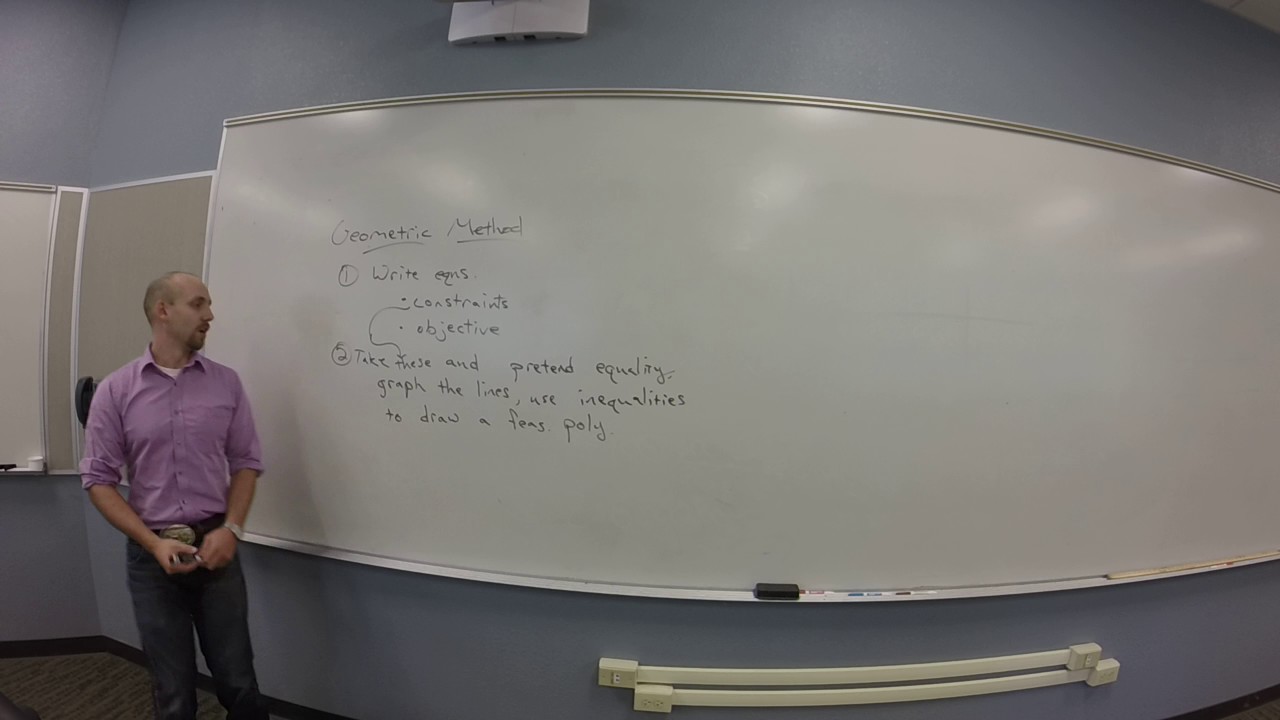 Geometric Method
① Write eqns.
• constraints
• objective
② Take these and pretend equality,
graph the lines, use inequalities
to draw a feas. poly.